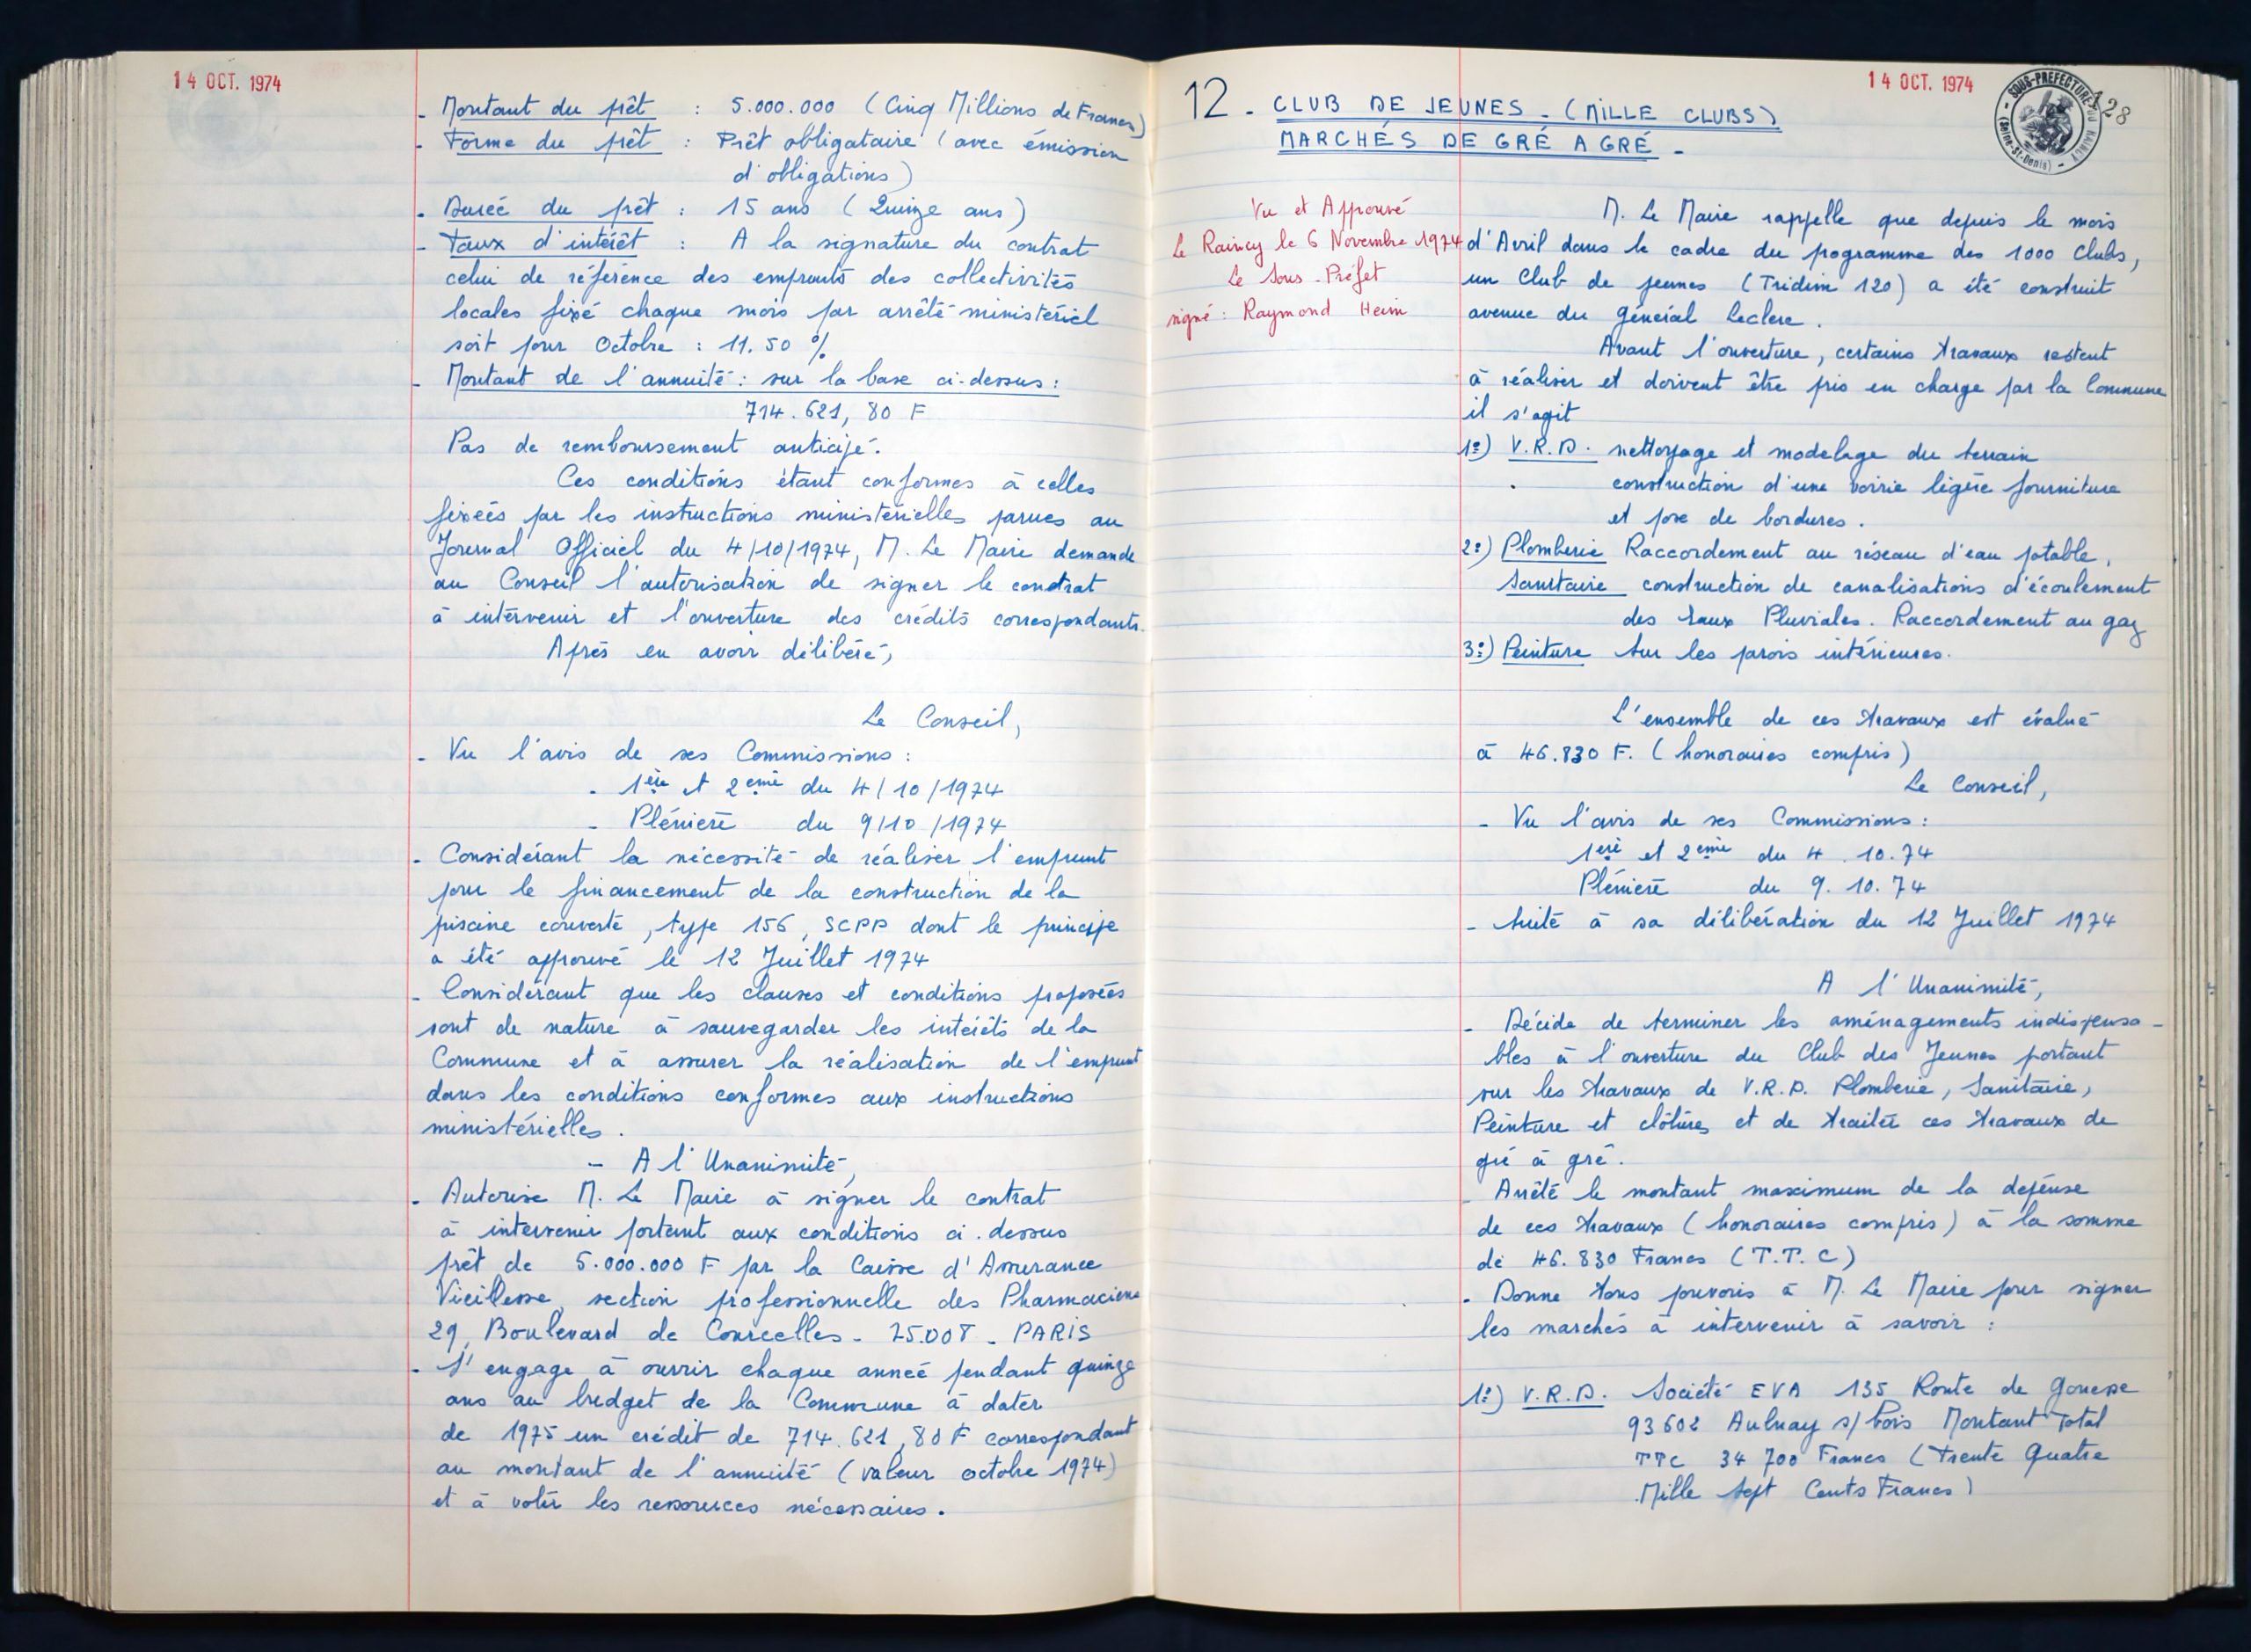 14 OCT. 1974
- Montant du prêt : 5.000.000 (Cinq Millions de Francs)
- Forme du prêt : Prêt obligataire (avec émission
d'obligations)
- Durée du prêt : 15 ans (Quinze ans)
- Taux d'intérêt : A la signature du contrat
celui de référence des emprunts des collectivités
locales fixé chaque mois par arrêté ministériel
soit pour Octobre : 11.50 %
- Montant de l'annuité : sur la base ci-dessus :
714.621,80 F
Pas de remboursement anticipé.
Ces conditions étant conformes à celles
fixées par les instructions ministérielles parues au
Journal Officiel du 4/10/1974, M. Le Maire demande
au Conseil l'autorisation de signer le contrat
à intervenir et l'ouverture des crédits correspondants.
Après en avoir délibéré,
Le Conseil,
- Vu l'avis de ses Commissions :
- 1ère et 2ème du 4/10/1974
- Plénière du 9/10/1974
- Considérant la nécessité de réaliser l'emprunt
pour le financement de la construction de la
piscine couverte, type 156, SCPP dont le principe
a été approuvé le 12 Juillet 1974
- Considérant que les clauses et conditions proposées
sont de nature à sauvegarder les intérêts de la
Commune et à assurer la réalisation de l'emprunt
dans les conditions conformes aux instructions
ministérielles.
- A l'Unanimité,
- Autorise M. Le Maire à signer le contrat
à intervenir portant aux conditions ci-dessus
prêt de 5.000.000 F par la Caisse d'Assurance
Vieillesse, section professionnelle des Pharmaciens
29, Boulevard de Courcelles - 75.008 - PARIS
- S'engage à ouvrir chaque année pendant quinze
ans au budget de la Commune à dater
de 1975 un crédit de 714.621,80 F correspondant
au montant de l'annuité (valeur octobre 1974)
et à voter les ressources nécessaires.
14 OCT. 1974
SOUS-PREFECTURE DU RAINCY
(Seine-St-Denis)
128
12 - CLUB DE JEUNES - (MILLE CLUBS)
MARCHÉS DE GRÉ A GRÉ -
Vu et Approuvé
Le Raincy le 6 Novembre 1974
Le Sous-Préfet
signé : Raymond Heim
M. Le Maire rappelle que depuis le mois
d'Avril dans le cadre du programme des 1000 Clubs,
un Club de jeunes (Tridim 120) a été construit
avenue du Général Leclerc.
Avant l'ouverture, certains travaux restent
à réaliser et doivent être pris en charge par la Commune
il s'agit
1°) V.R.D. nettoyage et modelage du terrain
construction d'une voirie légère fourniture
et pose de bordures.
2°) Plomberie Raccordement au réseau d'eau potable,
Sanitaire construction de canalisations d'écoulement
des Eaux Pluviales. Raccordement au gaz
3°) Peinture Sur les parois intérieures.
L'ensemble de ces travaux est évalué
à 46.830 F. (honoraires compris)
Le Conseil,
- Vu l'avis de ses Commissions :
1ère et 2ème du 4.10.74
Plénière du 9.10.74
- Suite à sa délibération du 12 Juillet 1974
A l'Unanimité,
- Décide de terminer les aménagements indispensa-
bles à l'ouverture du Club des Jeunes portant
sur les travaux de V.R.D. Plomberie, Sanitaire,
Peinture et clôtures et de traiter ces travaux de
gré à gré.
- Arrête le montant maximum de la dépense
de ces travaux (honoraires compris) à la somme
de 46.830 Francs (T.T.C)
- Donne tous pouvoirs à M. Le Maire pour signer
les marchés à intervenir à savoir :
1°) V.R.D. Société EVA 135 Route de Gonesse
93602 Aulnay s/ bois Montant Total
TTC 34 700 Francs (Trente Quatre
Mille Sept Cents Francs)